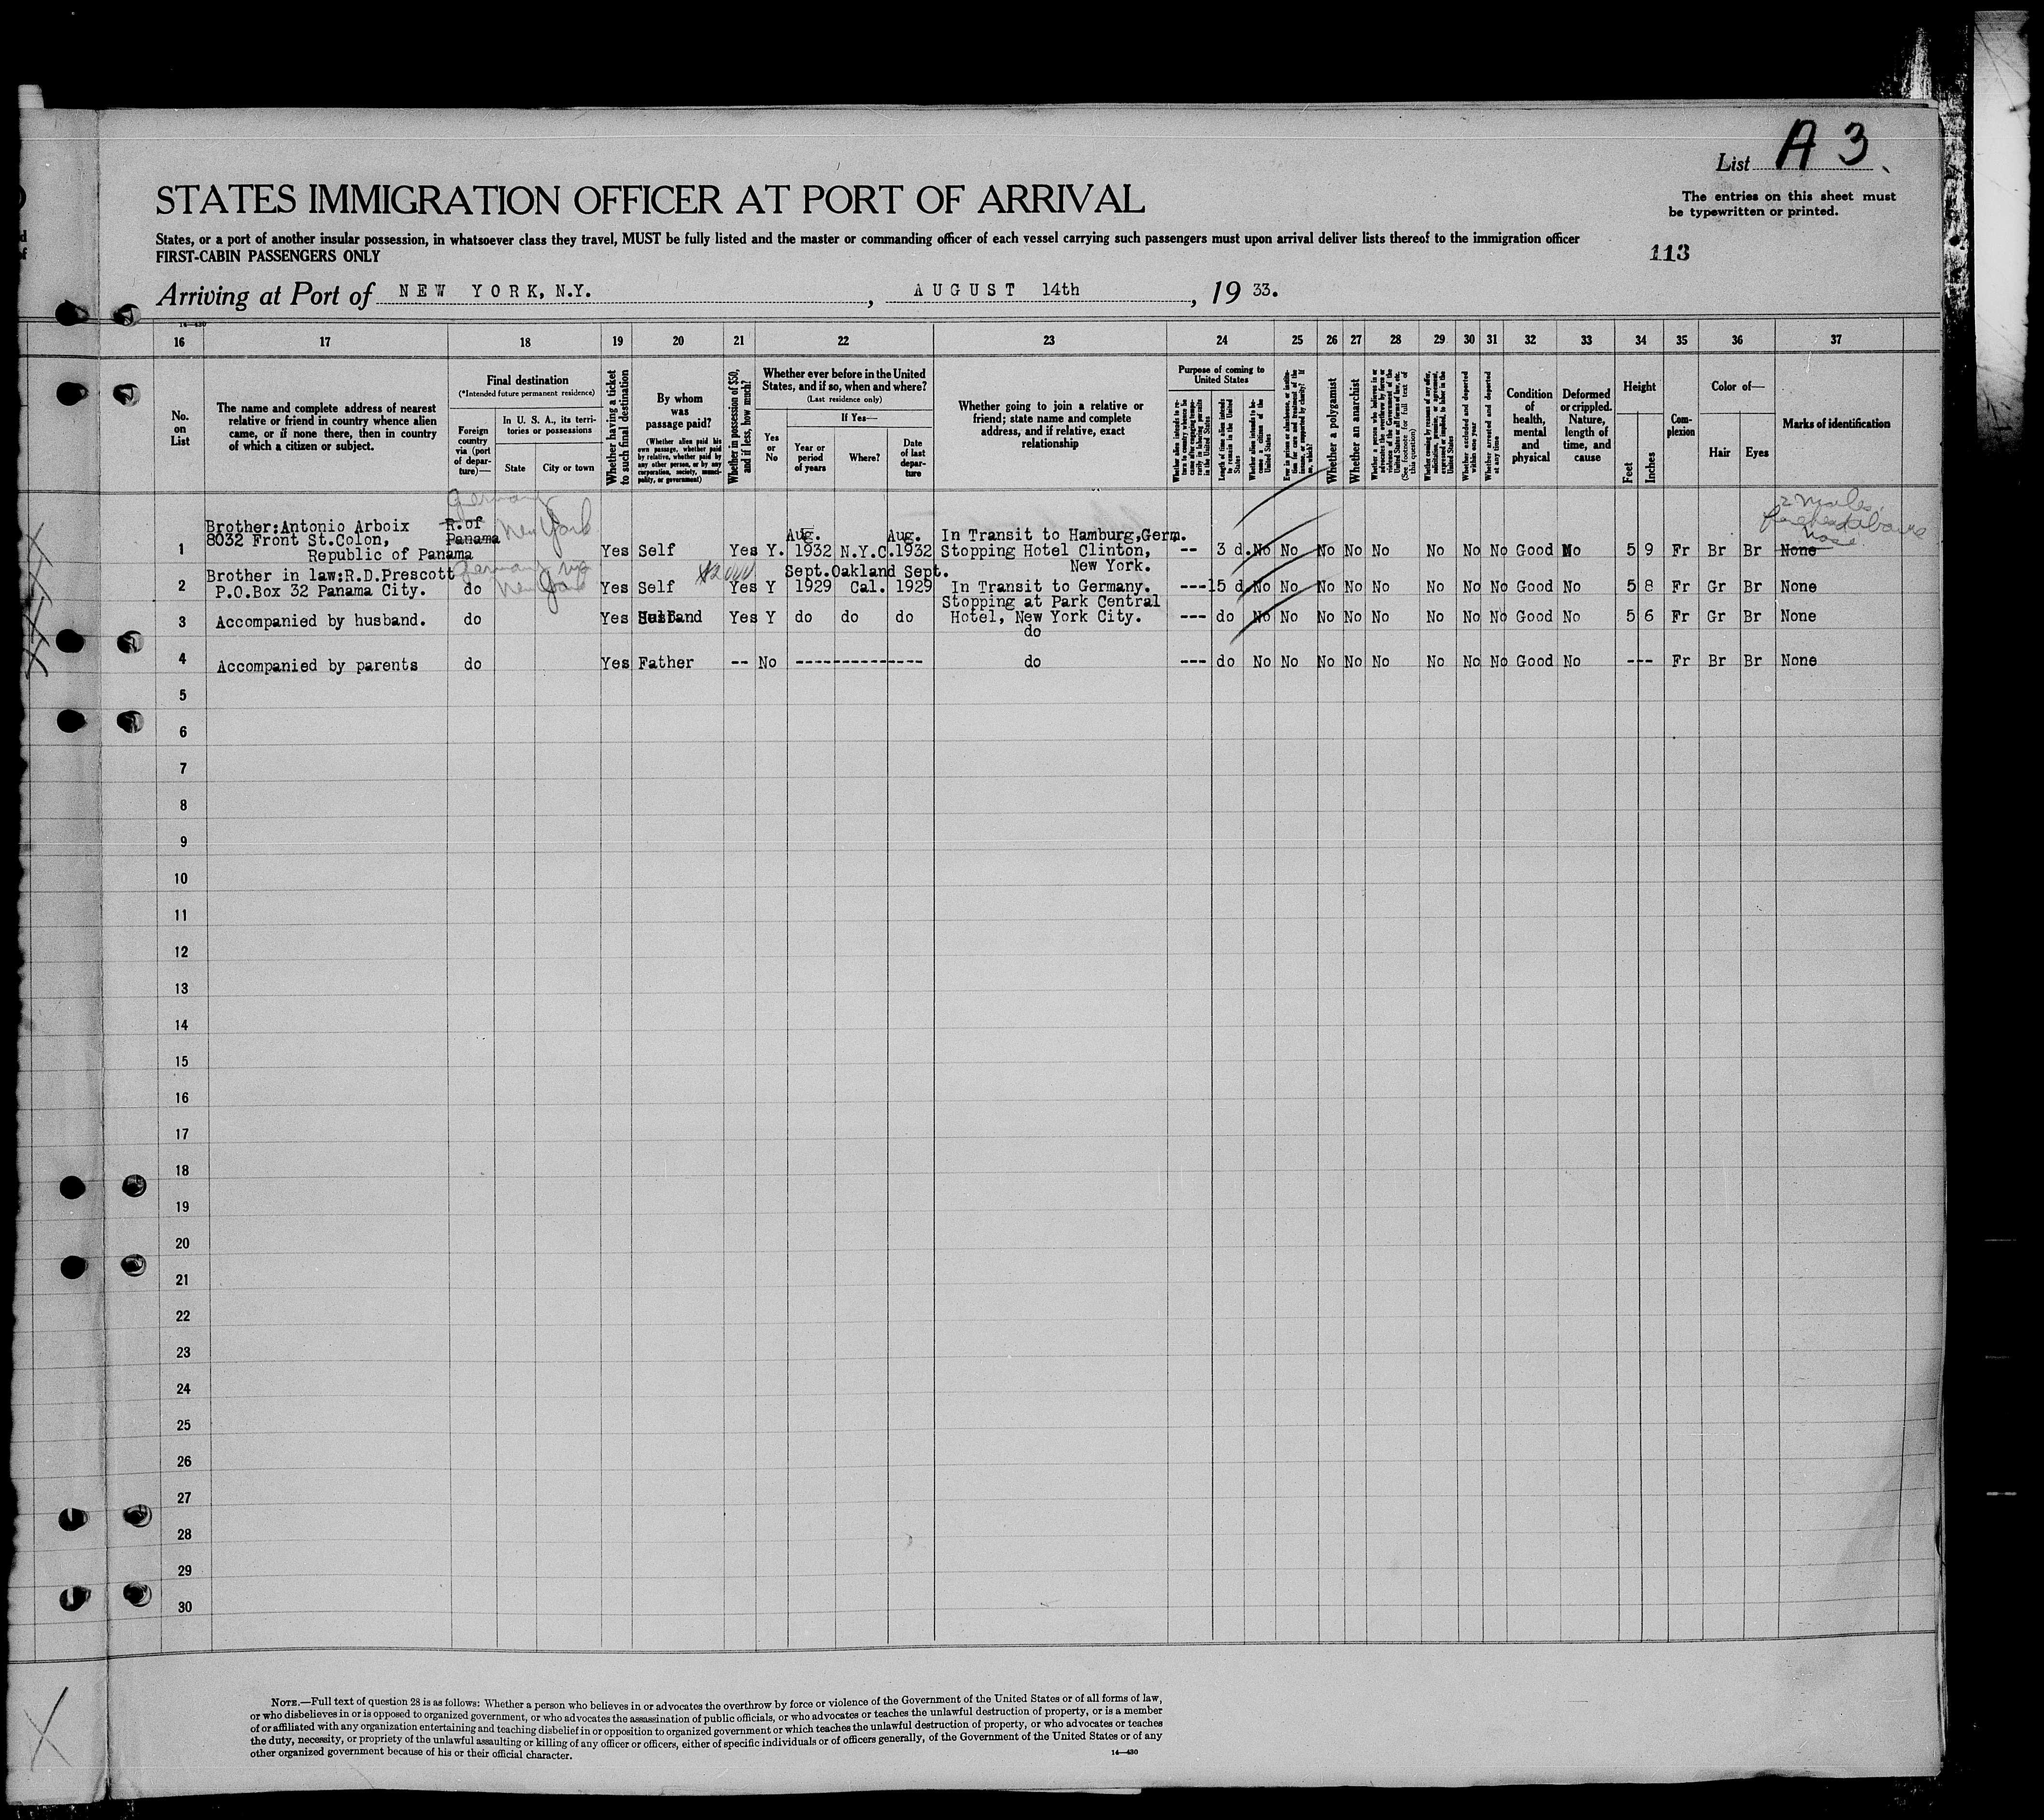 List A 3.
STATES IMMIGRATION OFFICER AT PORT OF ARRIVAL
The entries on this sheet must
be typewritten or printed.
States, or a port of another insular possession, in whatsoever class they travel, MUST be fully listed and the master or commanding officer of each vessel carrying such passengers must upon arrival deliver lists thereof to the immigration officer
FIRST-CABIN PASSENGERS ONLY
113
Arriving at Port of NEW YORK, N.Y. , AUGUST 14th , 19 33.
14—430
16 17 18 19 20 21 22 23 24 25 26 27 28 29 30 31 32 33 34 35 36 37
No. on List
The name and complete address of nearest relative or friend in country whence alien came, or if none there, then in country of which a citizen or subject.
Final destination
(*Intended future permanent residence)
Foreign country via (port of departure)—
In U. S. A., its territories or possessions
State
City or town
Whether having a ticket to such final destination
By whom was passage paid?
(Whether alien paid his own passage, whether paid by relative, whether paid by any other person, or by any corporation, society, municipality, or government)
Whether in possession of $50, and if less, how much?
Whether ever before in the United States, and if so, when and where?
(Last residence only)
Yes or No
If Yes—
Year or period of years
Where?
Date of last departure
Whether going to join a relative or friend; state name and complete address, and if relative, exact relationship
Purpose of coming to United States
Whether alien intends to return to country whence he came after engaging temporarily in laboring pursuits in the United States
Length of time alien intends to remain in the United States
Whether alien intends to become a citizen of the United States
Ever in prison or almshouse, or institution for care and treatment of the insane, or supported by charity? If so, which?
Whether a polygamist
Whether an anarchist
Whether a person who believes in or advocates the overthrow by force or violence of the Government of the United States or all forms of law, etc. (See footnote for full text of this question)
Whether coming by reason of any offer, solicitation, promise, or agreement, expressed or implied, to labor in the United States
Whether excluded and deported within one year
Whether arrested and deported at any time
Condition of health, mental and physical
Deformed or crippled. Nature, length of time, and cause
Height
Feet
Inches
Complexion
Color of—
Hair
Eyes
Marks of identification
Germany
New York
2 moles
forehead above
nose
Brother:Antonio Arboix R.of
8032 Front St.Colon, Panama Aug. Aug. In Transit to Hamburg,Germ.
1 Republic of Panama Yes Self Yes Y. 1932 N.Y.C. 1932 Stopping Hotel Clinton, -- 3 d. No No No No No No No No Good No 5 9 Fr Br Br None
New York.
Germany via
New York
$2000
Brother in law:R.D.Prescott Sept. Oakland Sept.
2 P.O.Box 32 Panama City. do Yes Self Yes Y 1929 Cal. 1929 In Transit to Germany. --- 15 d No No No No No No No No Good No 5 8 Fr Gr Br None
Stopping at Park Central
3 Accompanied by husband. do Yes Husband Yes Y do do do Hotel, New York City. --- do No No No No No No No No Good No 5 6 Fr Gr Br None
do
4 Accompanied by parents do Yes Father -- No ------------- do --- do No No No No No No No No Good No --- Fr Br Br None
5
6
7
8
9
10
11
12
13
14
15
16
17
18
19
20
21
22
23
24
25
26
27
28
29
30
NOTE.—Full text of question 28 is as follows: Whether a person who believes in or advocates the overthrow by force or violence of the Government of the United States or of all forms of law,
or who disbelieves in or is opposed to organized government, or who advocates the assassination of public officials, or who advocates or teaches the unlawful destruction of property, or is a member
of or affiliated with any organization entertaining and teaching disbelief in or opposition to organized government or which teaches the unlawful destruction of property, or who advocates or teaches
the duty, necessity, or propriety of the unlawful assaulting or killing of any officer or officers, either of specific individuals or of officers generally, of the Government of the United States or of any
other organized government because of his or their official character.
14—430